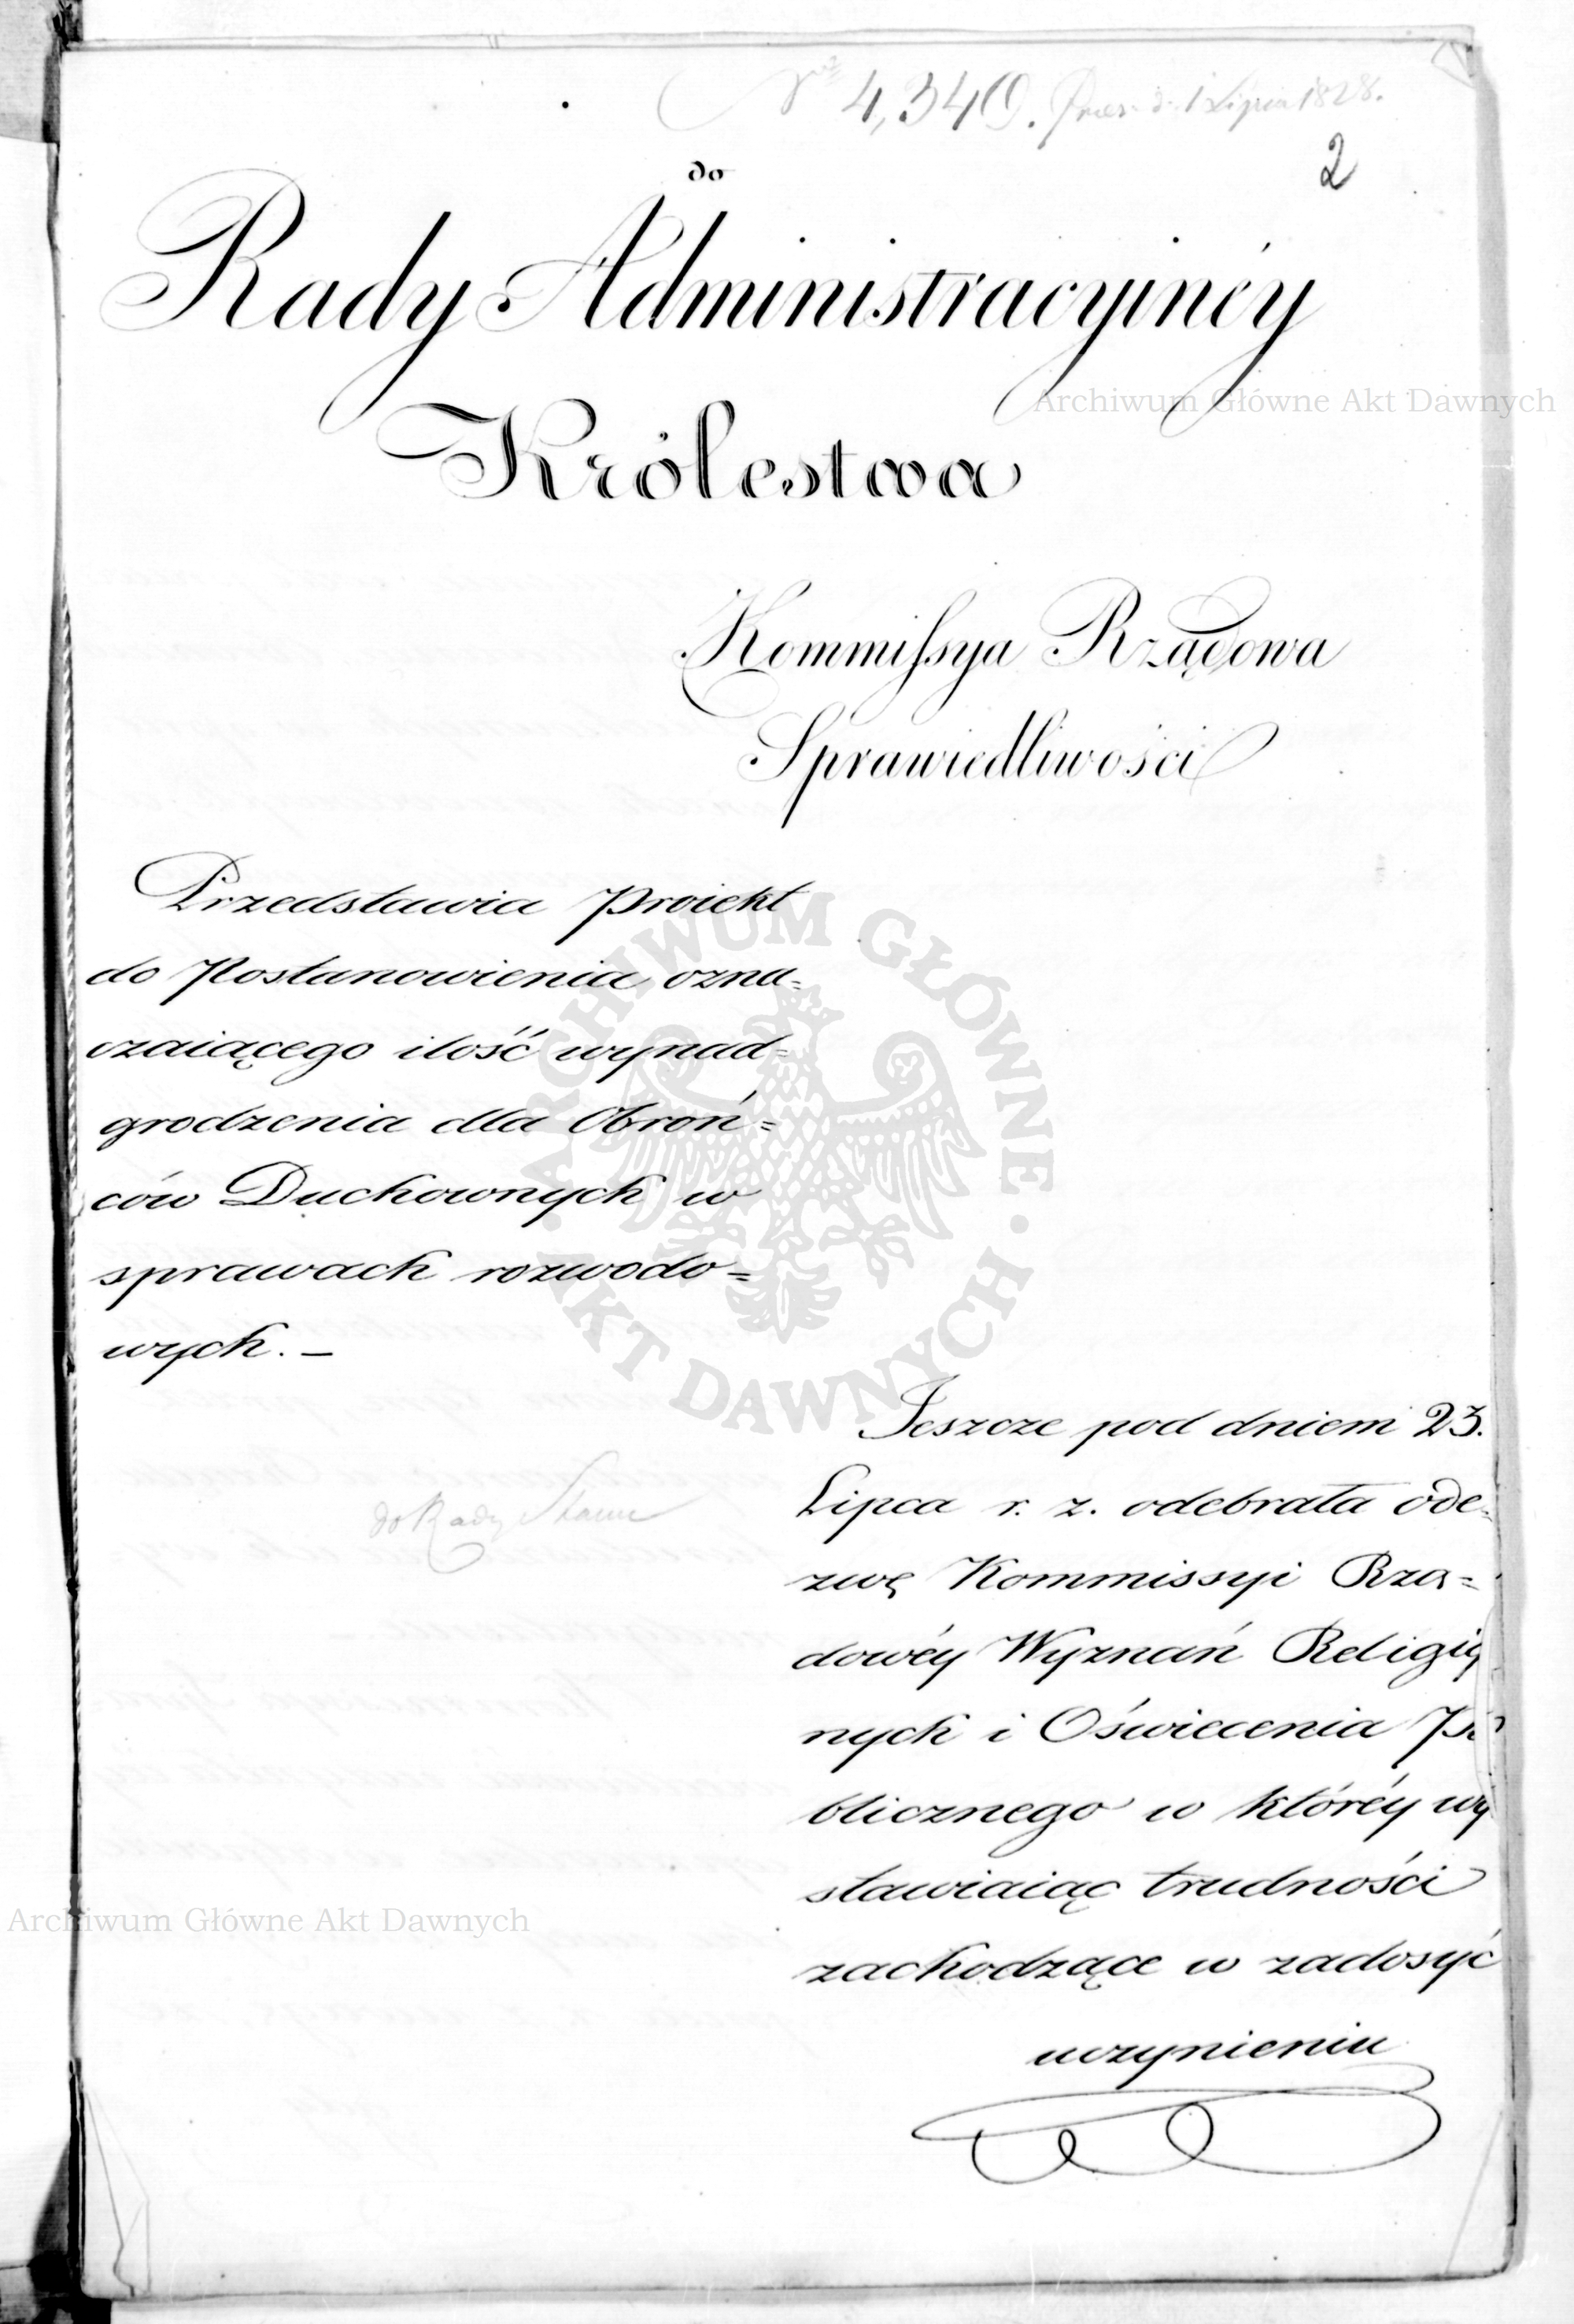 Nro 4,340. Prez. d. 1 Lipca 1828.
2
do
Rady Administracyinéy
Królestwa
Kommissya Rządowa
Sprawiedliwości
Przedstawia Proiekt
do Postanowienia ozna=
czaiącego ilość wynad=
grodzenia dla Obroń=
ców Duchownych w
sprawach rozwodo=
wych. –
do Rady Stanu
Ieszcze pod dniem 23.
Lipca r. z. odebrała ode=
zwę Kommissyi Rzą=
dowéy Wyznań Religiy
nych i Oświecenia Pu
blicznego w któréy wy
stawiaiąc trudności
zachodzące w zadosyć
uczynieniu
Archiwum Główne Akt Dawnych
ARCHIWUM GŁÓWNE AKT DAWNYCH
Archiwum Główne Akt Dawnych